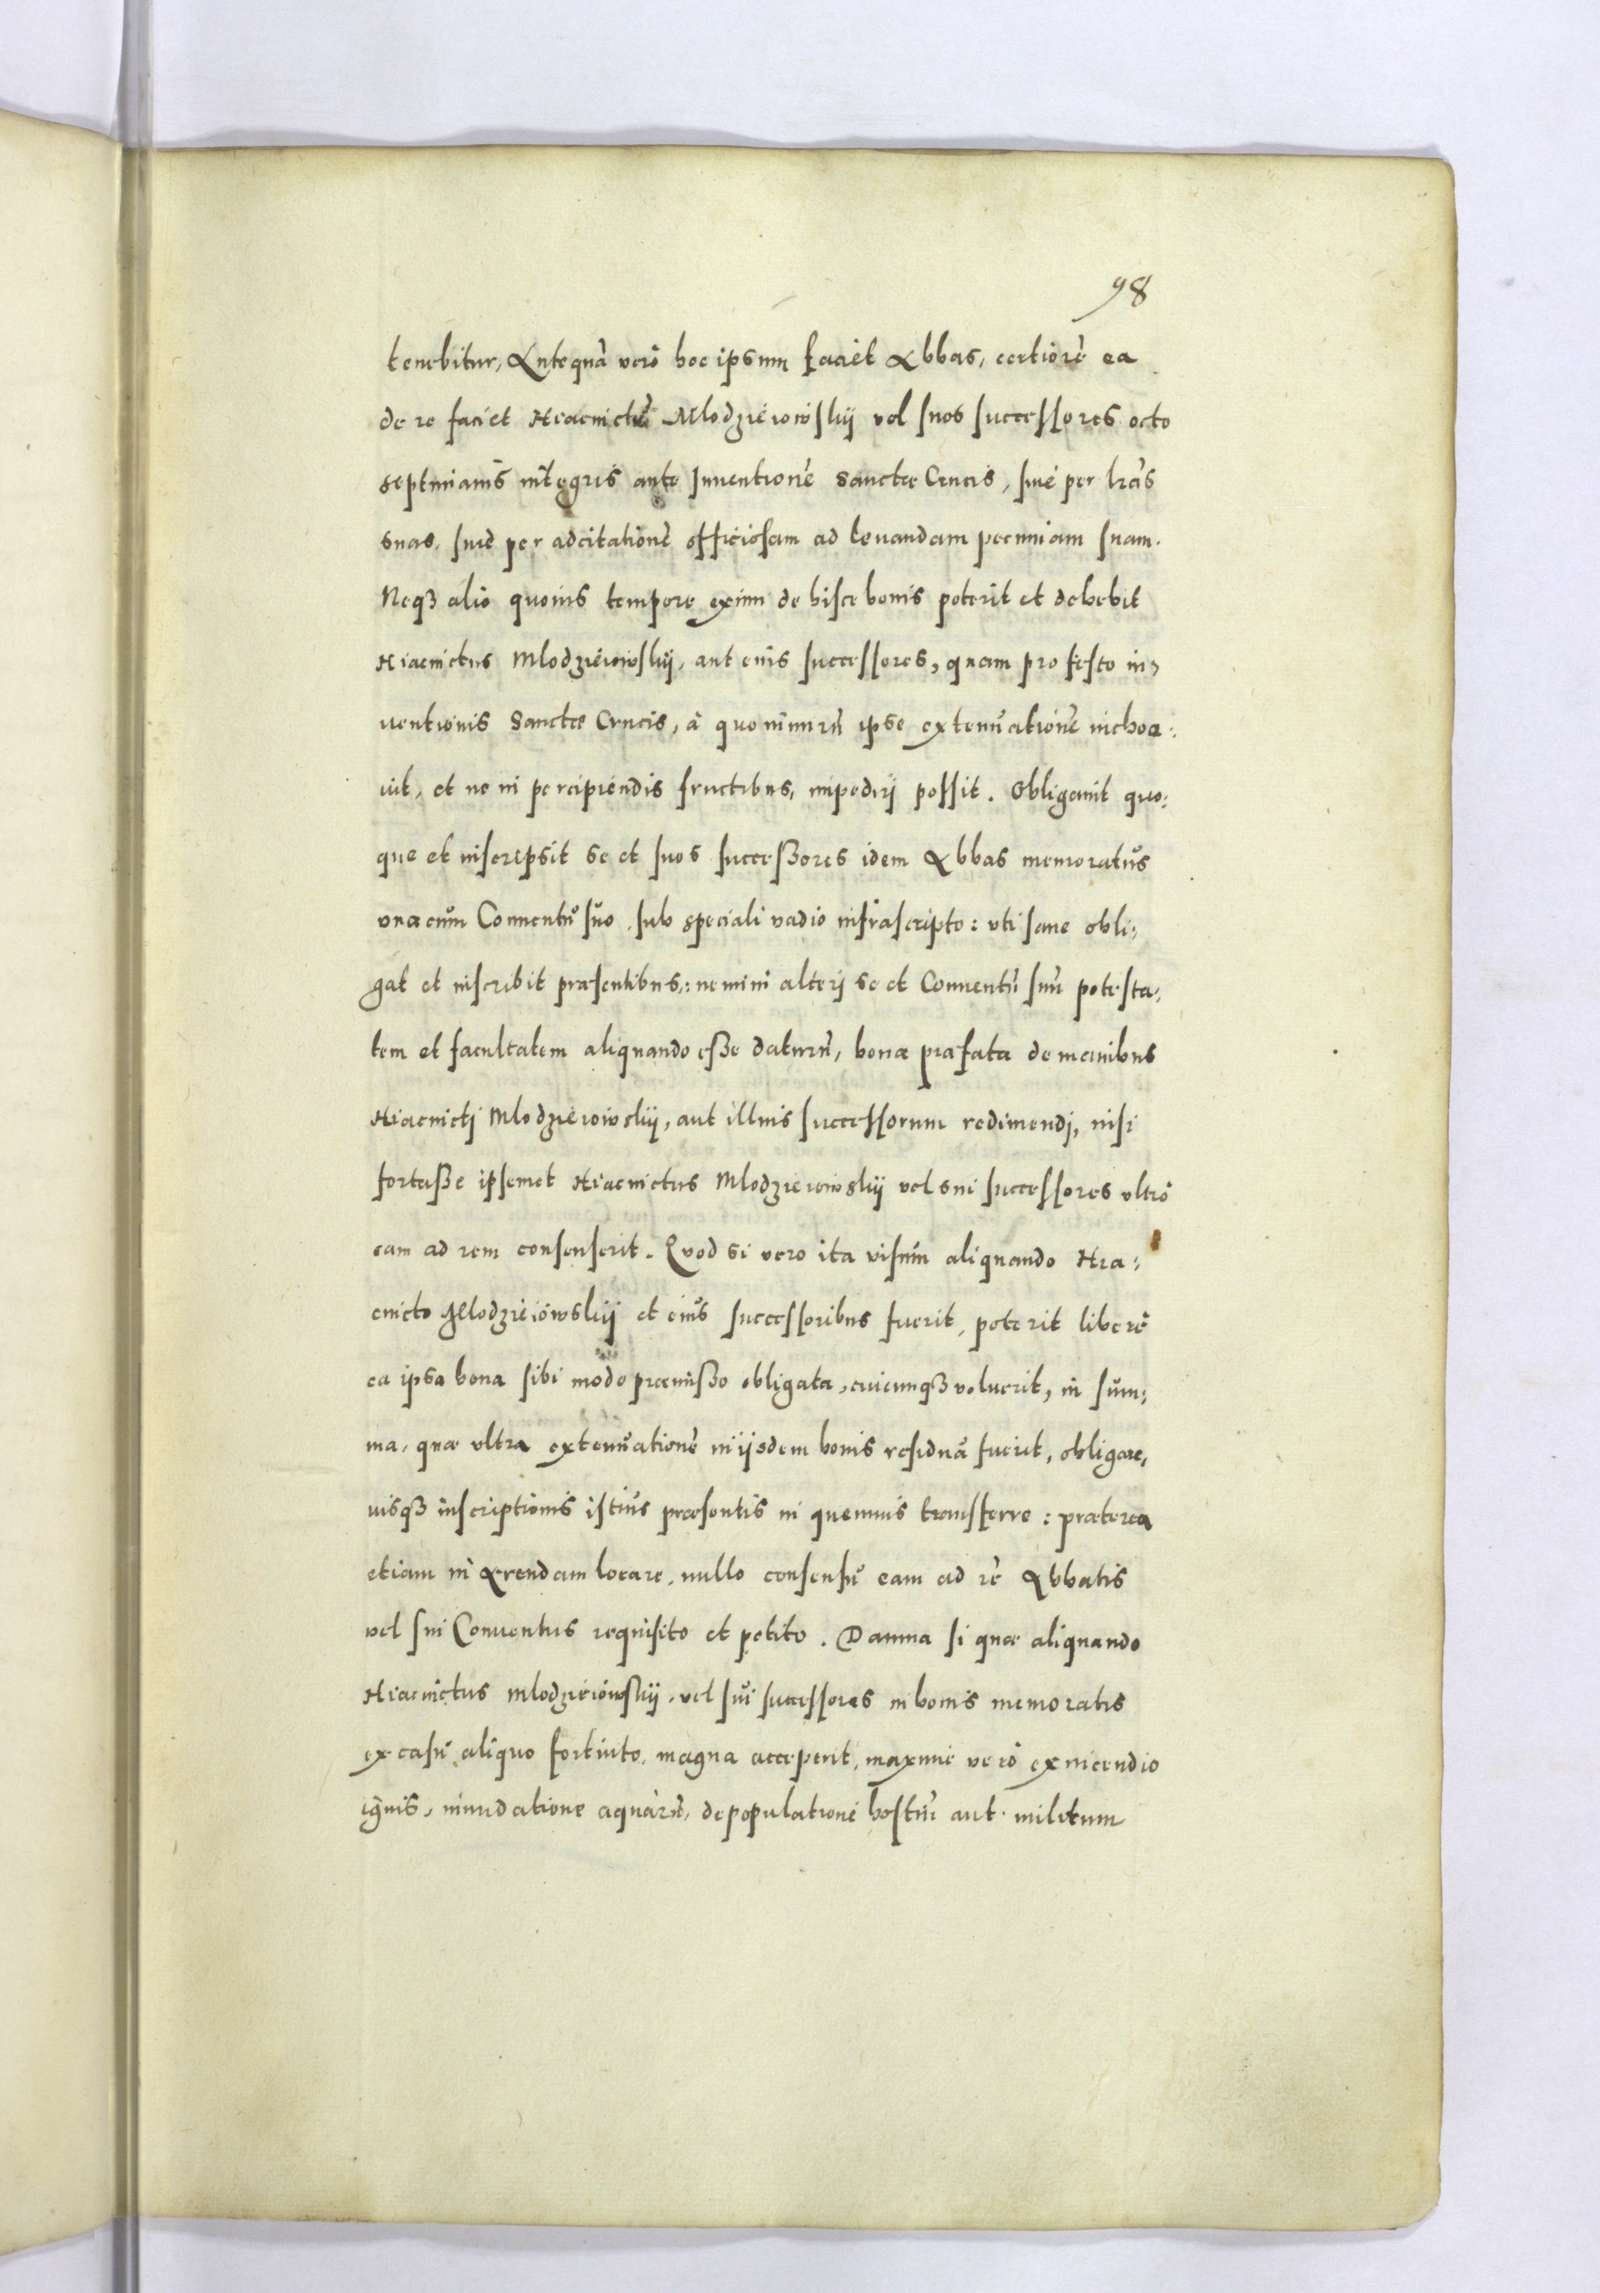 98
tenebitur, Antequā verò hoc ipsum faciet Abbas, certiorē ea
de re faciet Hiacinctū Mlodzieiowskij vel suos successores octo
septimanis integris ante Inuentionē Sanctæ Crucis, siue per lrās
suas, siue per adcitationē officiosam ad leuandam pecuniam suam.
Neqȝ alio quouis tempore eximi de hisce bonis poterit et debebit
Hiacinctus Mlodzieiowskij, aut eius successores, quam pro festo in,
uentionis Sanctæ Crucis, à quo nimirū ipse extenuationē inchoa:
uit, et ne in percipiendis fructibus, impedirj possit. Obligauit quo:
que et inscripsit se et suos successores idem Abbas memoratus
vna cum Conuentu suo, sub speciali vadio infrascripto: vti sane obli,
gat et inscribit præsentibus,: nemini alterj se et Conuentū suū potesta,
tem et facultatem aliquando esse daturū, bona præfata de manibus
Hiacinctj Mlodzieiowskij, aut illius successorum redimendj, nisi
fortasse ipsemet Hiacinctus Mlodzieiowskij vel sui successores vltrò
eam ad rem consenserit. Quod si vero ita visum aliquando Hia:
cincto Mlodzieiowskij et eius successoribus fuerit, poterit liberè
ea ipsa bona sibi modo præmisso obligata, cuicunqȝ voluerit, in sum:
ma, quæ vltra extenuationē in ijsdem bonis residua fuerit, obligare,
iusqȝ inscriptionis istius præsentis in quemuis transferre: præterea
etiam in Arendam locare, nullo consensu eam ad rē Abbatis
vel sui Conuentus requisito et petito. Damna si quæ aliquando
Hiacinctus Mlodzieiowskij, vel sui successores in bonis memoratis
ex casu aliquo fortuito, magna acceperit, maxime verò ex incendio
ignis, inundatione aquarū, depopulatione hostiū aut militum